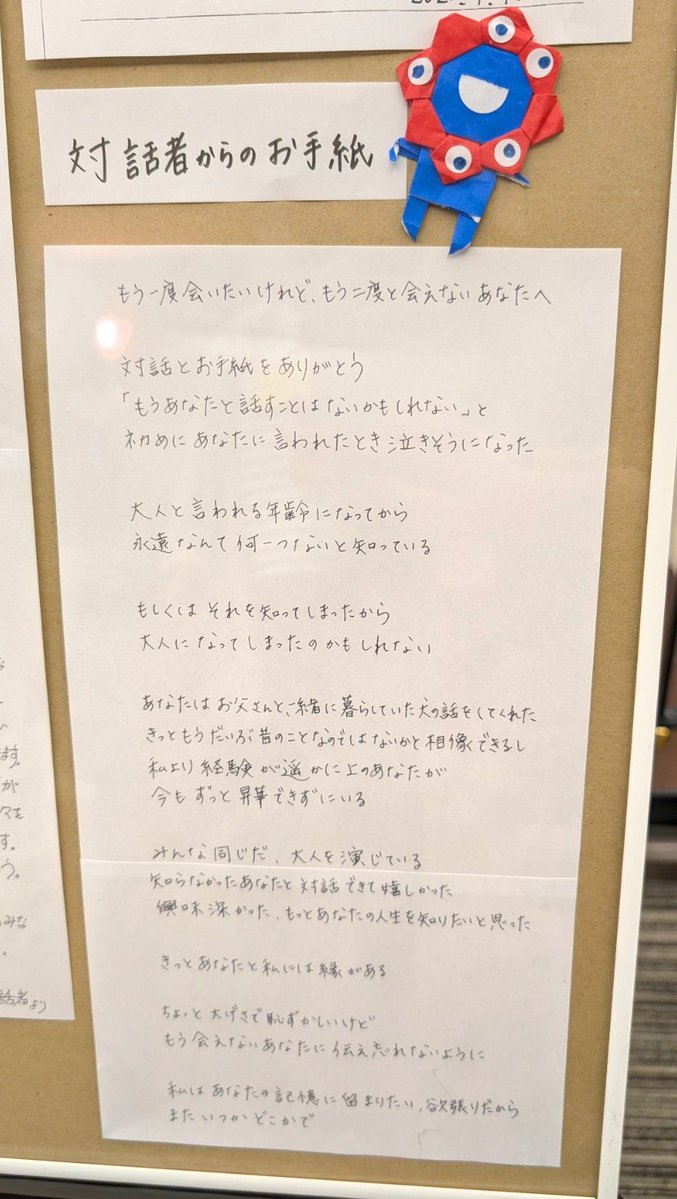 対話者からのお手紙
もう一度会いたいけれど、もう二度と会えないあなたへ
対話とお手紙をありがとう
「もうあなたと話すことはないかもしれない」と
初めにあなたに言われたとき泣きそうになった
大人と言われる年齢になってから
永遠なんて何一つないと知っている
もしくはそれを知ってしまったから
大人になってしまったのかもしれない
あなたはお父さんと、一緒に暮らしていた犬の話をしてくれた
きっともうだいぶ昔のことなのではないかと想像できるし
私より経験が遥かに上のあなたが
今もずっと昇華できずにいる
みんな同じだ、大人を演じている
知らなかったあなたと対話できて嬉しかった
興味深かった、もっとあなたの人生を知りたいと思った
きっとあなたと私には縁がある
ちょっと大げさで恥ずかしいけど
もう会えないあなたに伝え忘れないように
私はあなたの記憶に留まりたい、欲張りだから
またいつかどこかで
ます。
が
を
す。
う。
みな
話者より